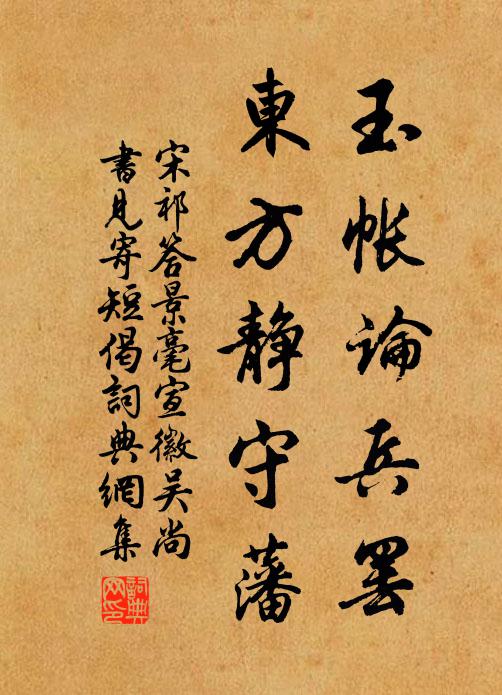 玉帐論兵罷
東方静守藩
宋祁答景毫宣徽吴尚
書見寄短偈詞典網集
詞典网印